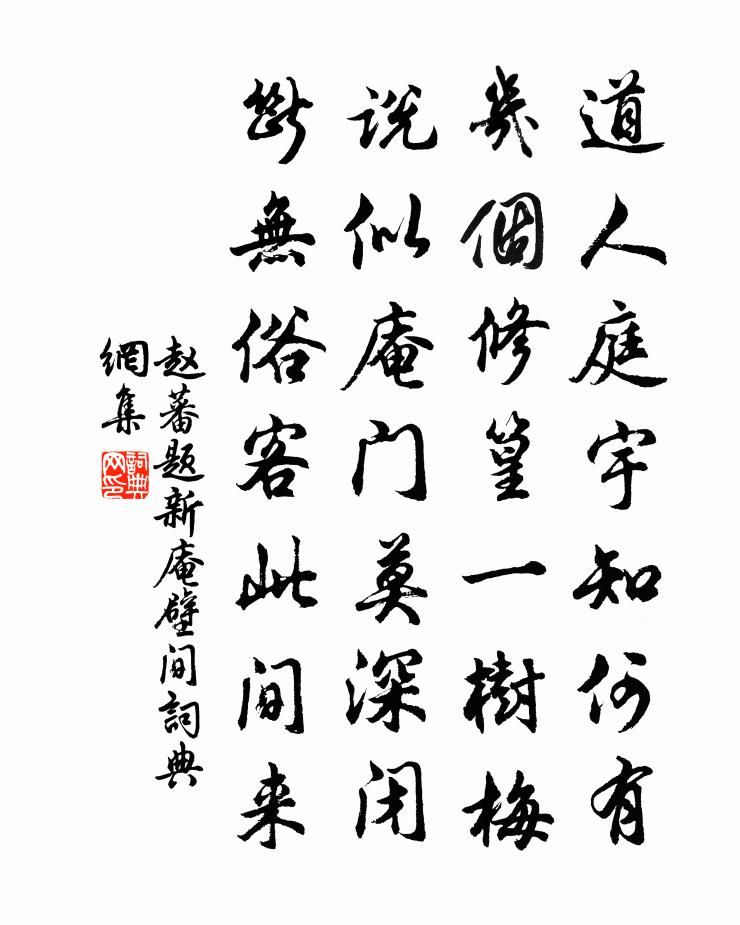 道人庭宇知何有
幾個修篁一樹梅
説似庵门莫深闭
斷無俗客此间来
赵蕃题新庵壁间詞典
網集
詞典
网印